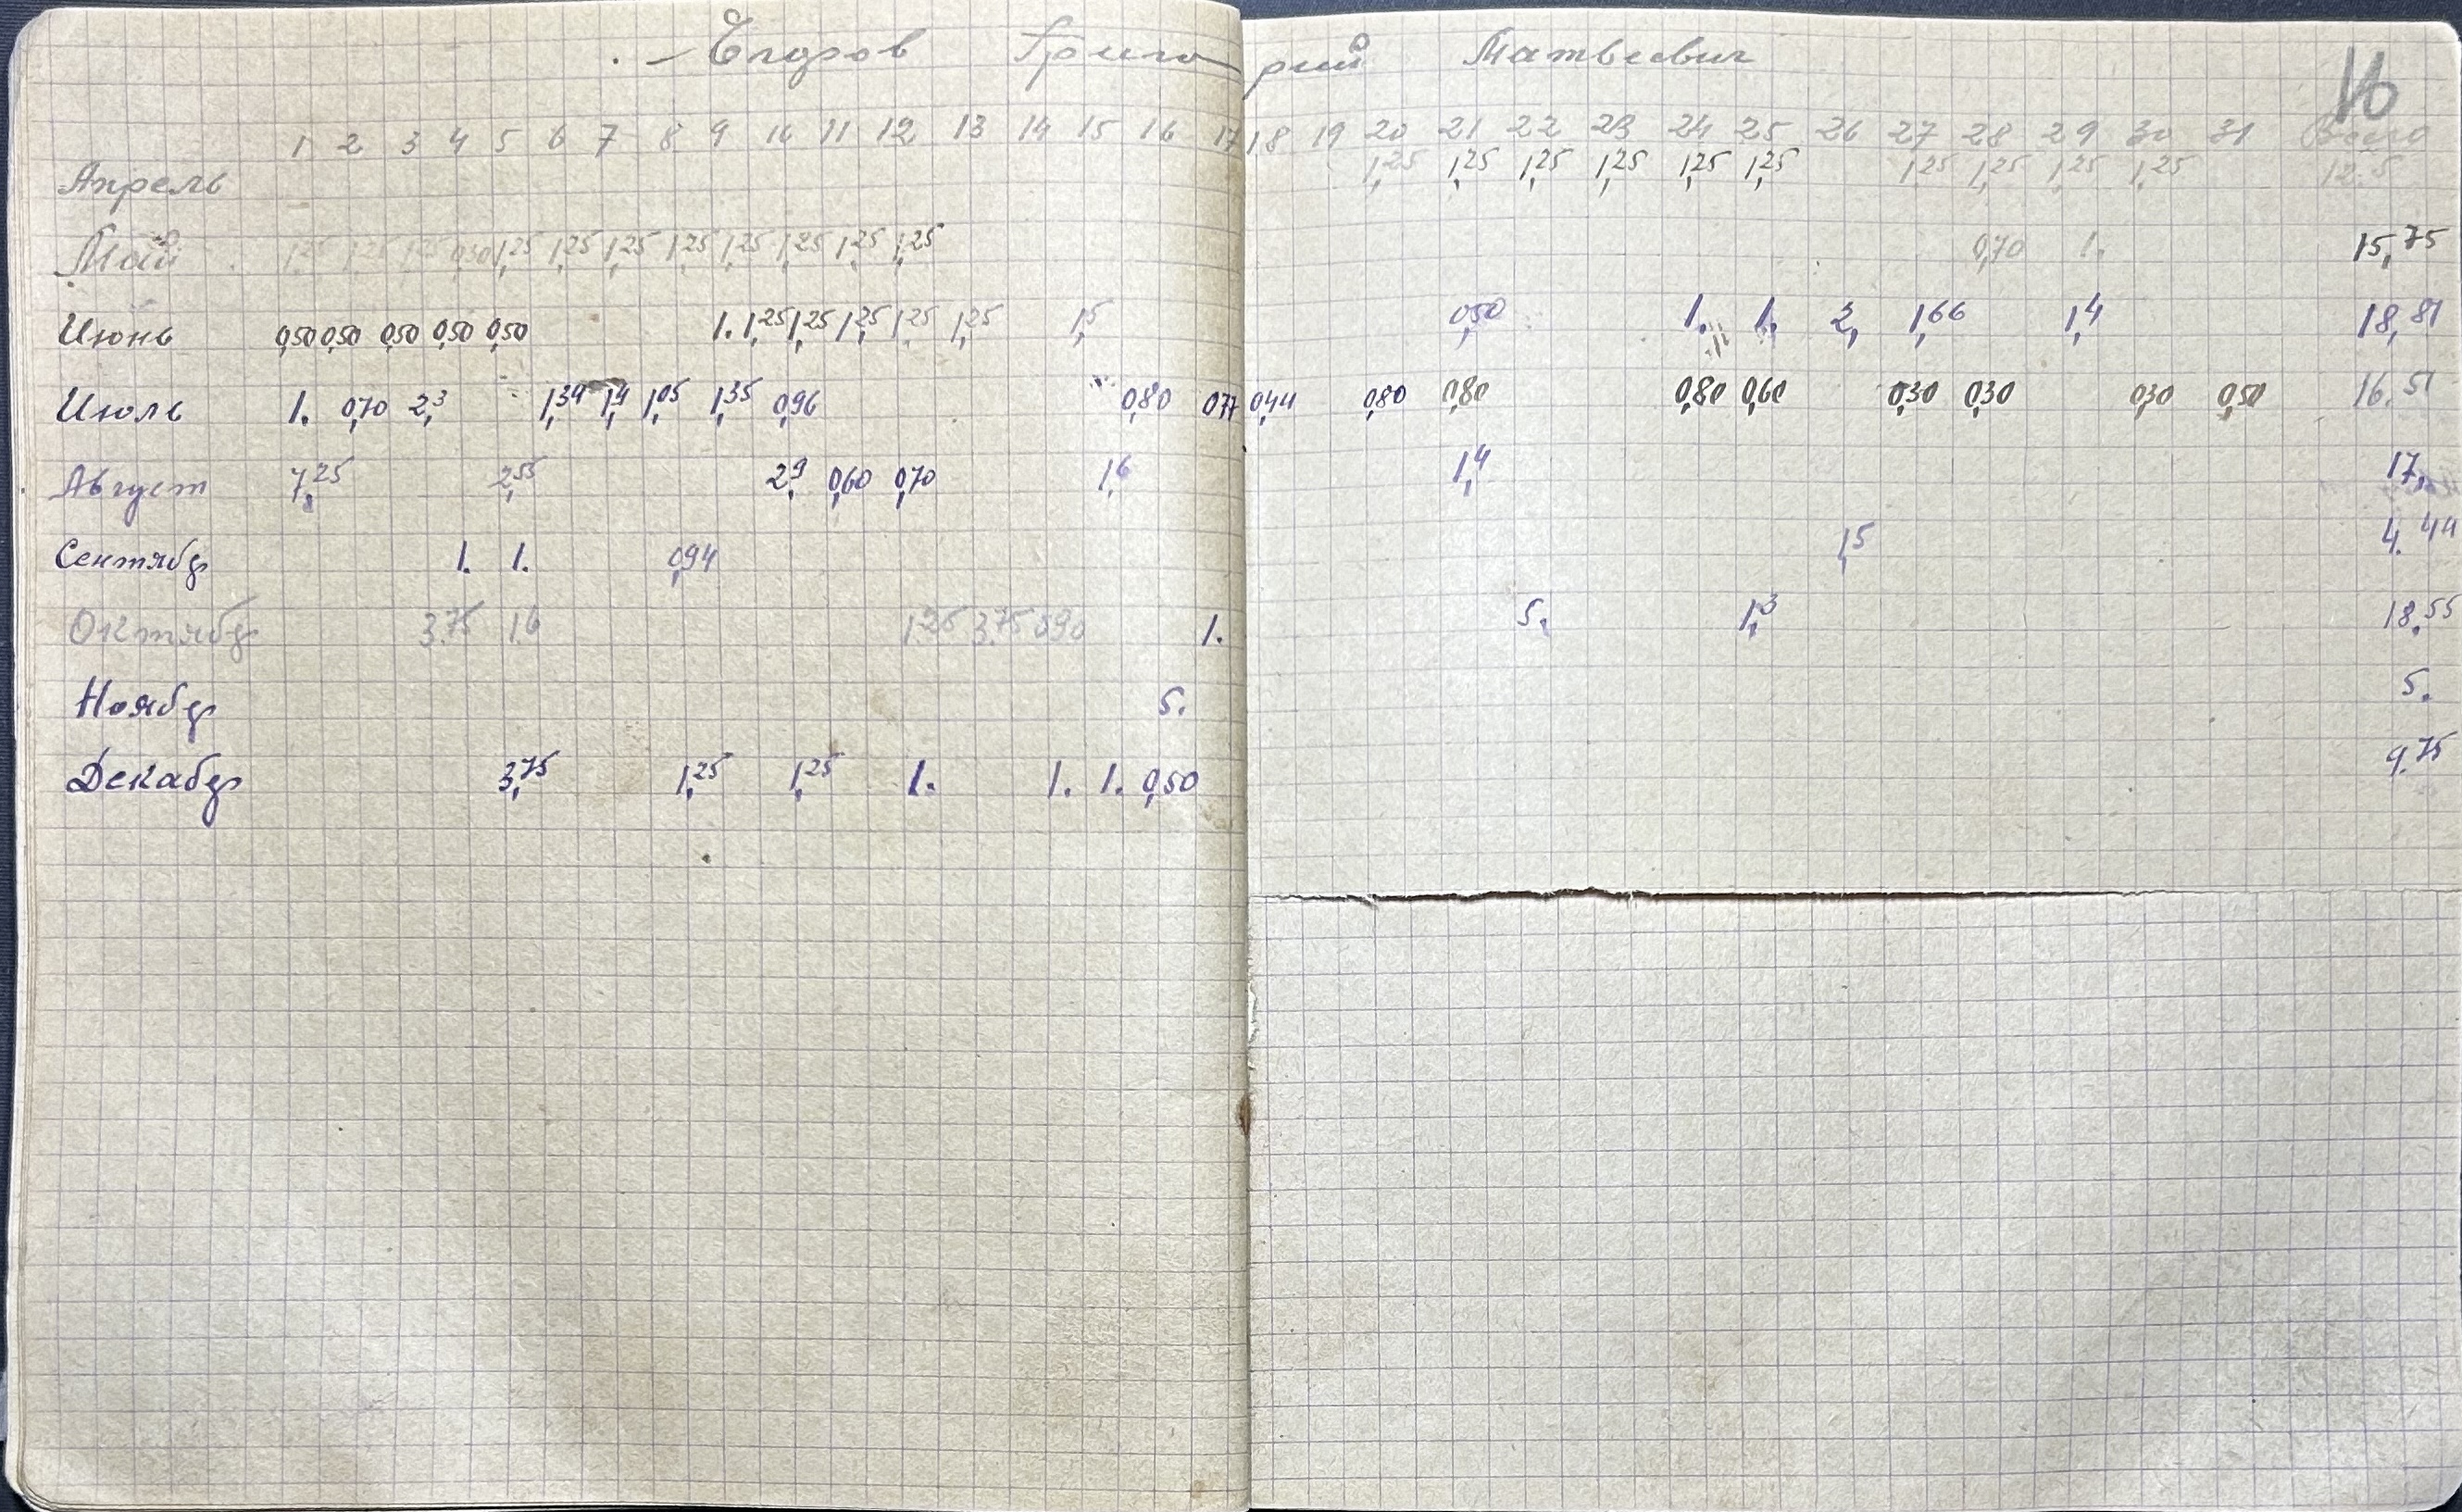 Егоров Григорий Матвеевич
16
1 2 3 4 5 6 7 8 9 10 11 12 13 14 15 16 17 18 19 20 21 22 23 24 25 26 27 28 29 30 31 Всего
Апрель 1,25 1,25 1,25 1,25 1,25 1,25 1,25 1,25 1,25 1,25 12.5
Май 1,25 1,25 1,25 0,30 1,25 1,25 1,25 1,25 1,25 1,25 1,25 1,25 0,70 1. 15,75
Июнь 0,50 0,50 0,50 0,50 0,50 1. 1,25 1,25 1,25 1,25 1,25 1,5 0,50 1. 1. 2, 1,66 1,4 18,81
Июль 1. 0,70 2,3 1,34 1,4 1,05 1,35 0,96 0,80 0,77 0,44 0,80 0,80 0,80 0,60 0,30 0,30 0,30 0,50 16.51
Август 7,25 2,55 2,9 0,60 0,70 1,6 1,4 17,
Сентябр 1. 1. 0,94 1,5 4.44
Октябр 3.75 1.6 1.25 3.75 0.90 1. 5. 1,3 18,55
Ноябр 5. 5.
Декабр 3,75 1,25 1,25 1. 1. 1. 0,50 9.75